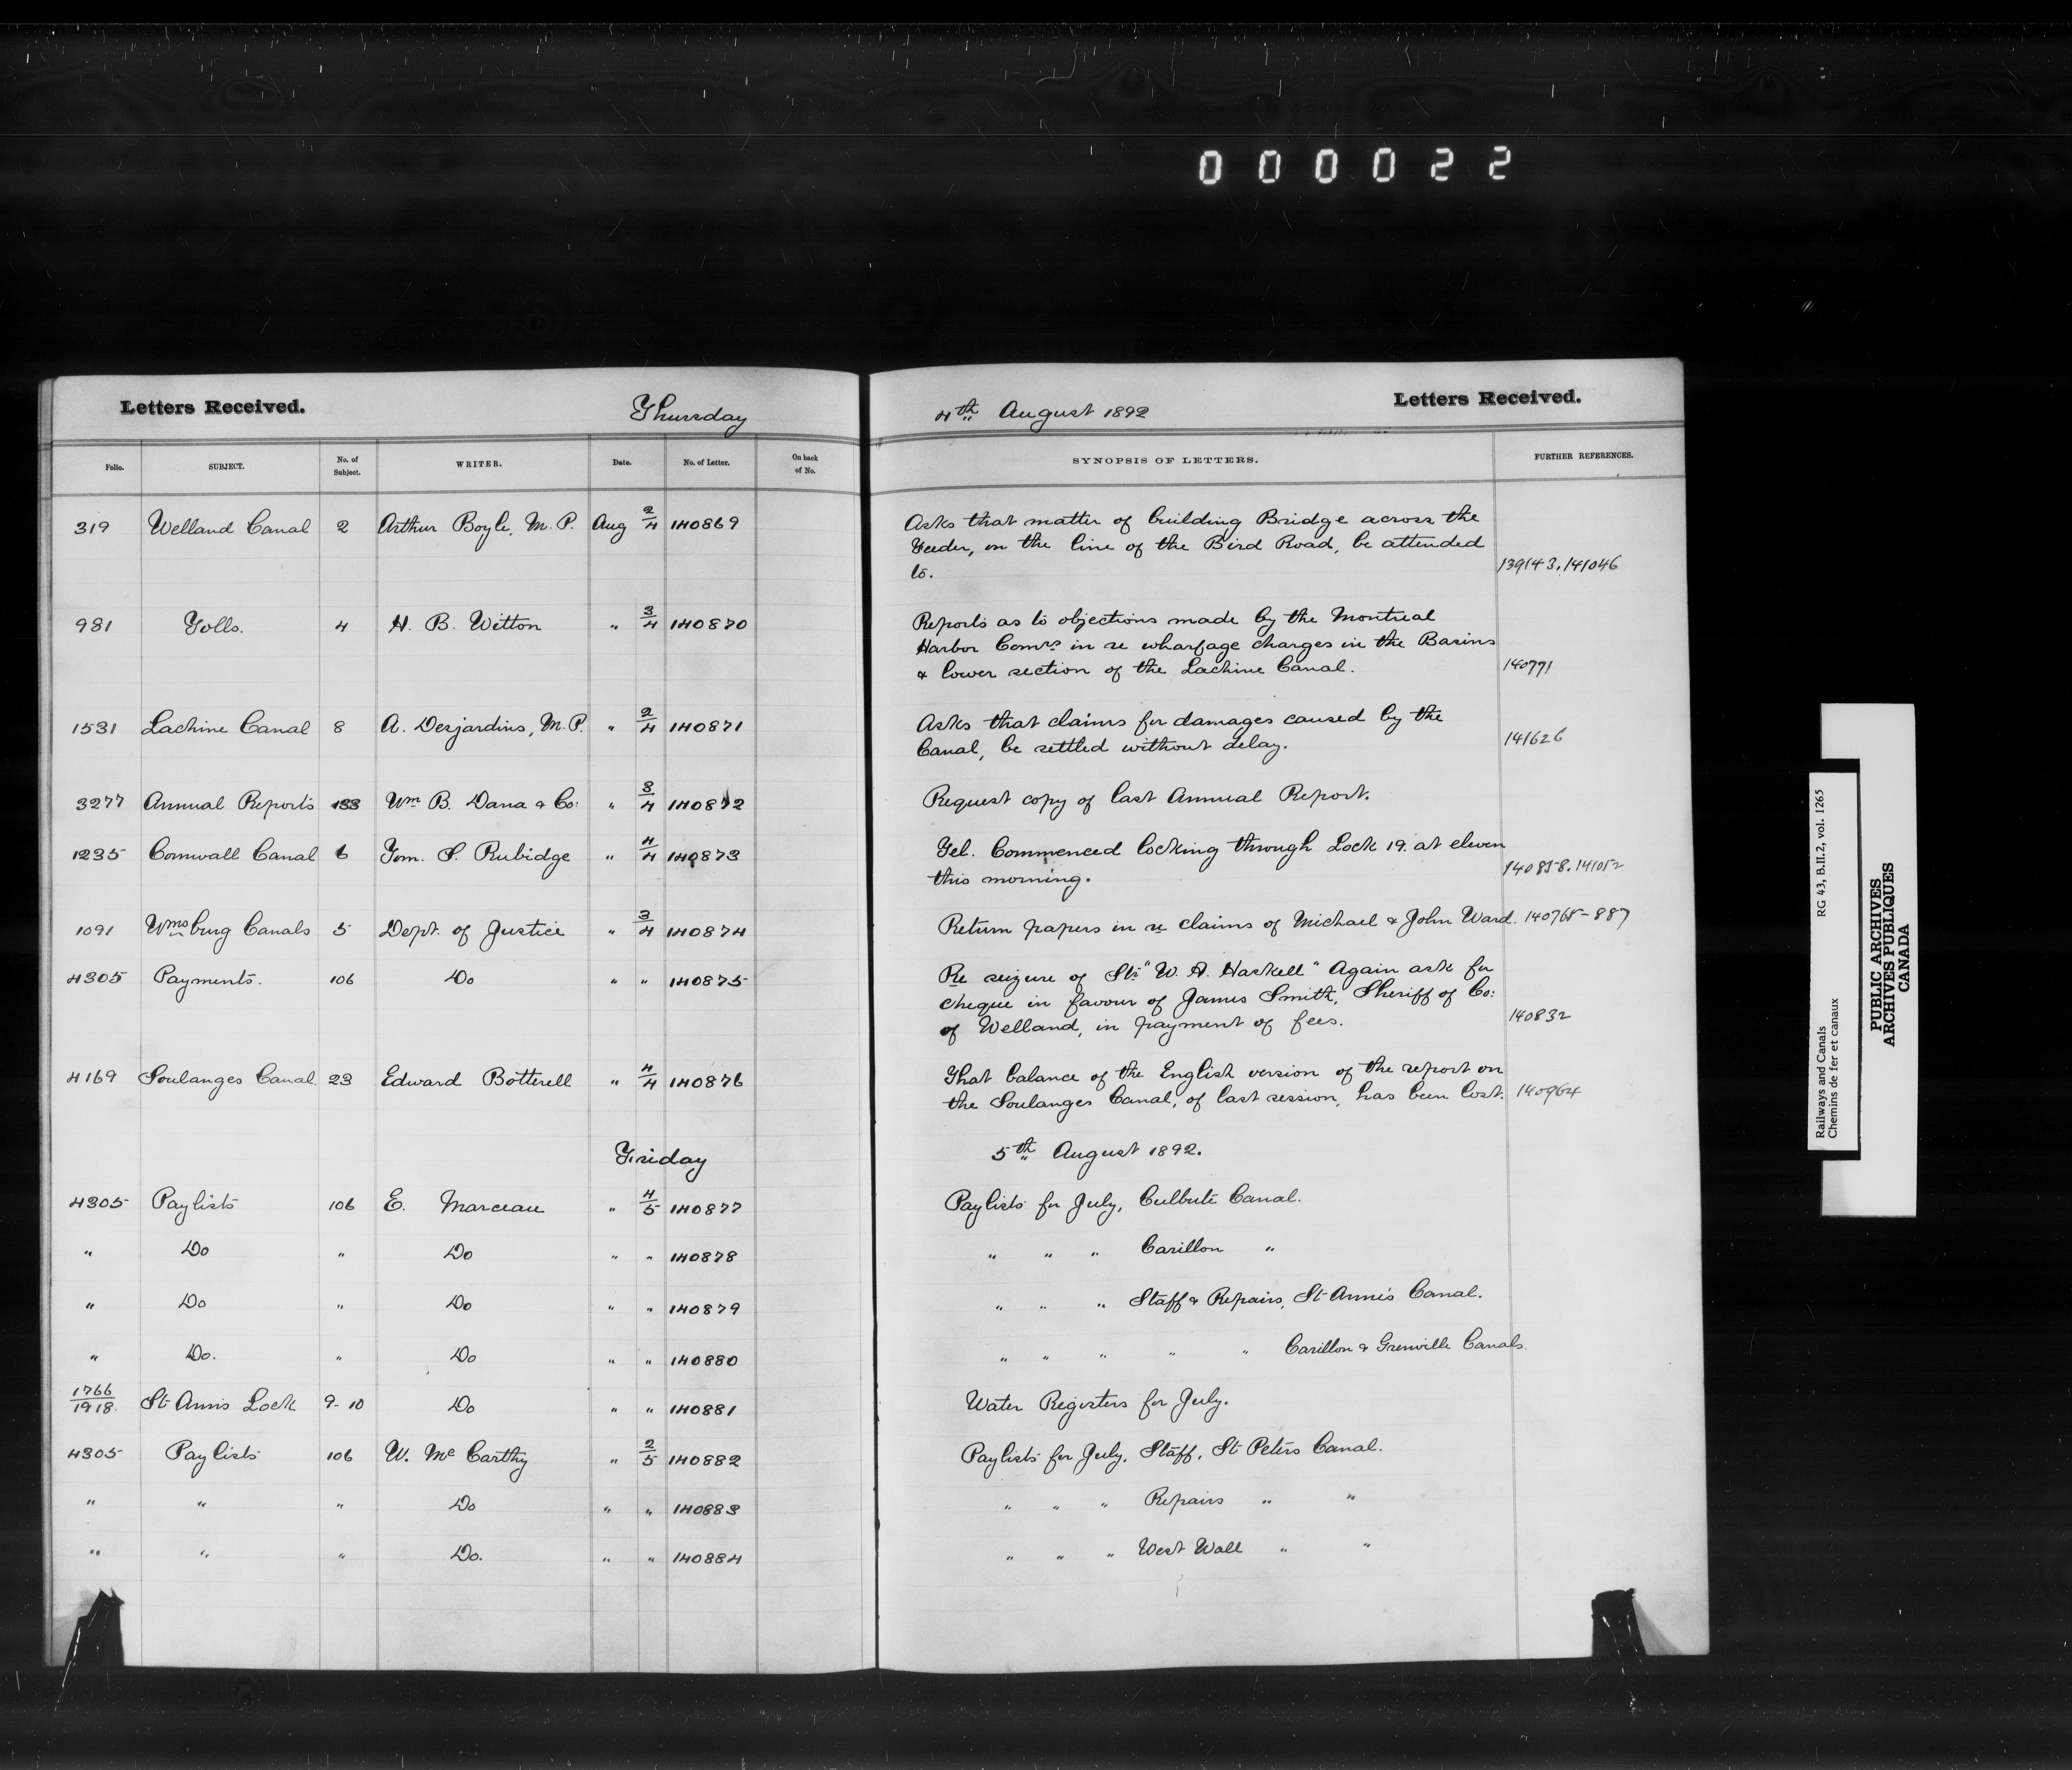 000022
Letters Received. Thursday 4th August 1892 Letters Received.
Folio. SUBJECT. No. of Subject. WRITER. Date. No. of Letter. On back of No. SYNOPSIS OF LETTERS. FURTHER REFERENCES.
319 Welland Canal 2 Arthur Boyle, M.P. Aug 2/4 140869 Asks that matter of building Bridge across the
Feeder, on the line of the Bird Road, be attended
to. 139143, 141046
981 Tolls. 4 H. B. Witton " 3/4 140870 Reports as to objections made by the Montreal
Harbor Comrs. in re wharfage charges in the Basins
& lower section of the Lachine Canal. 140771
1531 Lachine Canal 8 A. Desjardins, M.P. " 2/4 140871 Asks that claims for damages caused by the
Canal, be settled without delay. 141626
3277 Annual Reports 133 Wm B. Dana & Co: " 3/4 140872 Request copy of last Annual Report.
1235 Cornwall Canal 6 Tom. S. Rubidge " 4/4 140873 Tel. Commenced locking through Lock 19. at eleven
this morning. 140858. 141052
1091 Wmsburg Canals 5 Dept. of Justice " 3/4 140874 Return papers in re claims of Michael & John Ward. 140768-887
4305 Payments. 106 Do " " 140875 Re seizure of Str "W. A. Haskell" Again ask for
cheque in favour of James Smith, Sheriff of Co:
of Welland, in payment of fees. 140832
4169 Soulanges Canal 23 Edward Botterell " 4/4 140876 That balance of the English version of the report on
the Soulanges Canal, of last session, has been lost. 140964
Friday 5th August 1892.
4305 Paylists 106 E. Marceau " 4/5 140877 Paylists for July, Culbute Canal.
" Do " Do " " 140878 " " " Carillon "
" Do " Do " " 140879 " " " Staff & Repairs, St Anne's Canal.
" Do. " Do " " 140880 " " " " " Carillon & Grenville Canals.
1766/1918. St Anns Lock 9-10 Do " " 140881 Water Registers for July.
4305 Paylists 106 W. McCarthy " 2/5 140882 Paylists for July, Staff, St Peters Canal.
" " " Do " " 140883 " " " Repairs " "
" " " Do. " " 140884 " " " West Wall " "
Railways and Canals RG 43, B.II.2, vol. 1265
Chemins de fer et canaux
PUBLIC ARCHIVES
ARCHIVES PUBLIQUES
CANADA